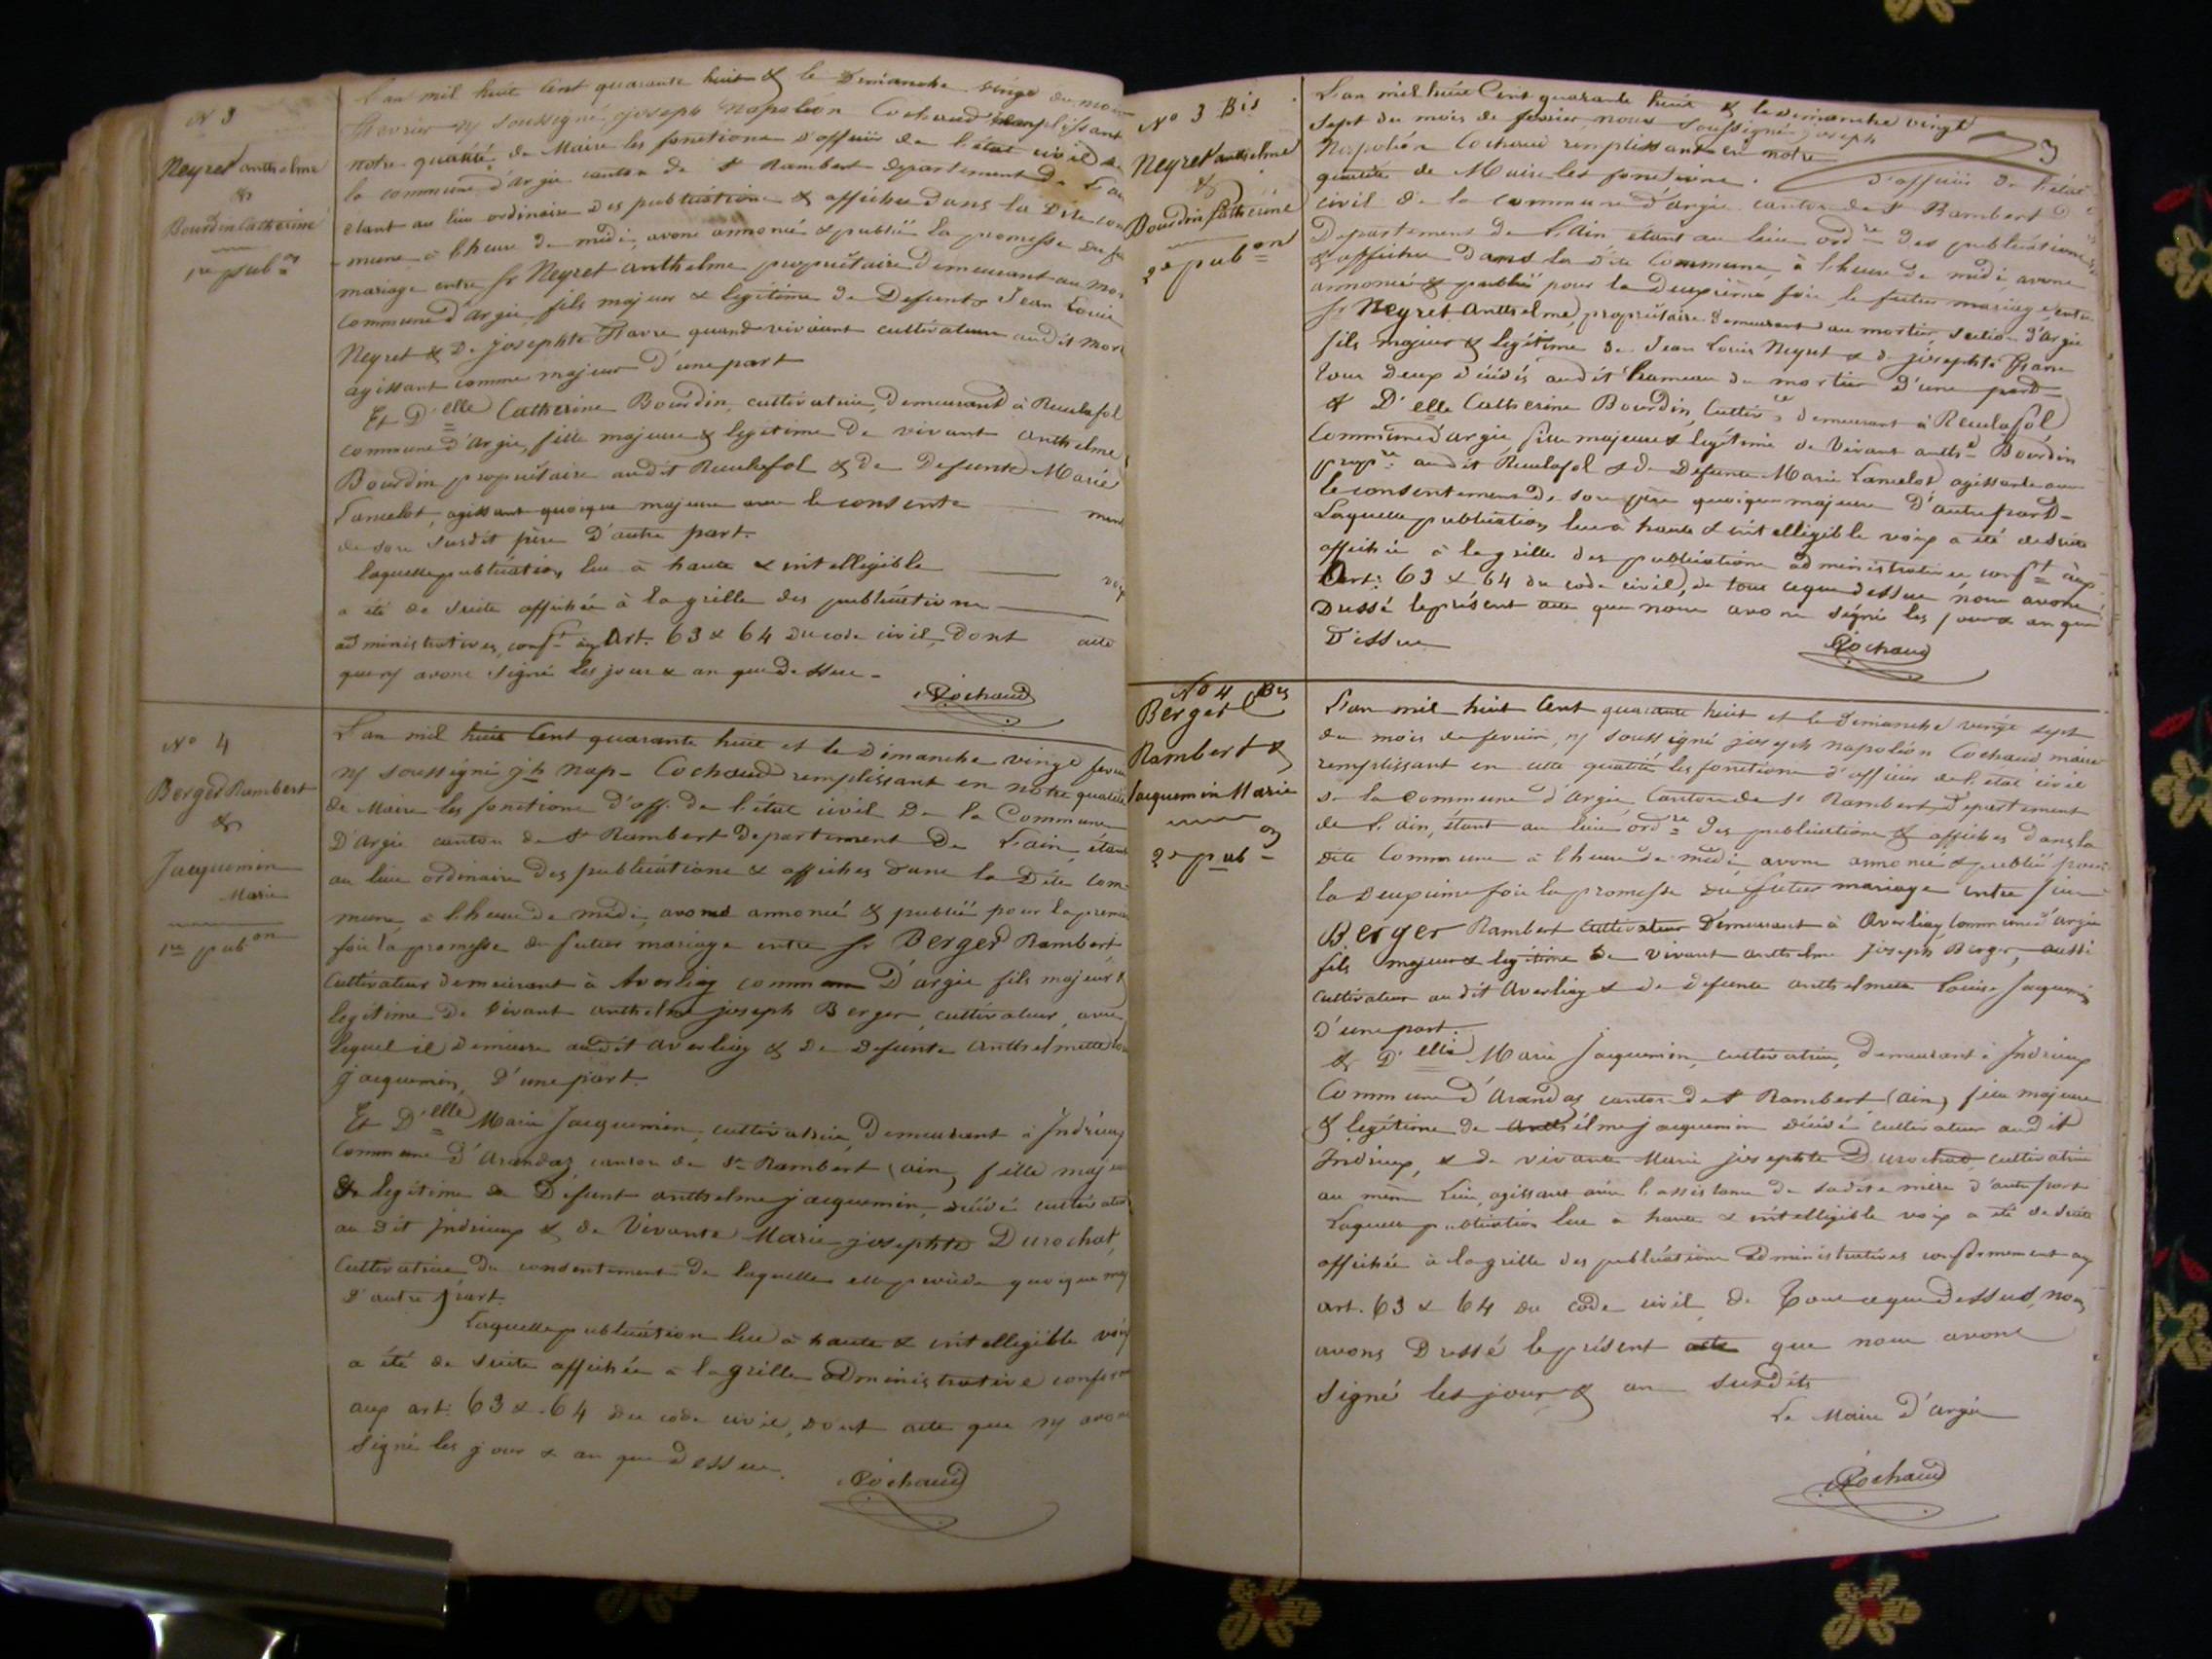 N 3
Neyret anthelme
&
Bourdin Catherine
1re pubon
L'an mil huit Cent quarante huit & le Dimanche vingt du mois
fevrier ns soussigné joseph Napoléon Cochaud remplissant
notre qualité de Maire les fonctions d'officier de l'état civil de
la commune d'argis canton de St Rambert departement de L'ain
étant au lieu ordinaire des publications & affiches dans la Dite com
-mune à l'heure de midi, avons annoncé & publié la promesse du fu
mariage entre Sr Neyret anthelme propriétaire demeurant au mor
commune d'argis, fils majeur & légitime de Defunts Jean Louis
Neyret & de josephte quand vivaient cultivateurs audit mor
agissant comme majeur d'une part
Et D'elle Catherine Bourdin, cultivatrice, demeurant à Reculafol
commune d'argis, fille majeure & legitime de vivant anthelme
Bourdin propriétaire audit Reculafol & de Defunte Marie
Lancelot, agissant quoique majeure avec le consente ment
de son susdit père D'autre part.
laquelle publication lue à haute & intelligible voix
a été de suite affichée à la grille des publications
administratives, conft aux Art. 63 & 64 du code civil, Dont acte
que ns avons signé les jour & an que dessus -
Cochaud
No 4
Berger Rambert
&
Jacquemin
Marie
1re pubon
L'an mil huit Cent quarante huit et le Dimanche vingt fevrier
ns soussigné jh Nap- Cochaud remplissant en notre qualité
de Maire les fonctions d'off. de l'état civil de la Commune
D'argis canton de St Rambert Departement de L'ain, étant
au lieu ordinaire des publications & affiches dans la Dite com-
mune, à l'heure de midi, avons annoncé & publié pour la premiere
fois la promesse du futur mariage entre Sr Berger Rambert
Cultivateur demeurant à Averliaz commune D'argis fils majeur &
legitime De Vivant anthelme joseph Berger, cultivateur, avec
lequel il demeure audit averliaz & de Defunte Anthelmette
Jacquemin, D'une part.
Et D'elle Marie Jacquemin, cultivatrice, Demeurant à Indrieux
Commune D'Arandaz canton de St Rambert (ain) fille majeure
& legitime de Défunt anthelme jacquemin, décédé cultivateur
au dit Indrieux & de Vivante Marie josephte Durochat,
Cultivatrice du consentement de laquelle elle procède quoique maj
D'autre part.
Laquelle publication lue à haute & intelligible voix
a été de suite affichée à la grille administrative conform
aux art. 63 & 64 du code civil, Dont acte que ns avons
signé les jour & an que dessus.
Cochaud
No 3 Bis
Neyret anthelme
&
Bourdin Catherine
2e pubon
3
L'an mil huit Cent quarante huit & le dimanche vingt
sept du mois de fevrier, nous soussigné joseph
Napoléon Cochaud remplissant en notre
qualité de Maire les fonctions d'officier de l'état
civil de la commune d'argis canton de St Rambert
Departement de L'ain étant au lieu ordre des publications
& affiches dans la dite Commune, à l'heure de midi avons
annoncé & publié pour la deuxième fois, le futur mariage entre
Sr Neyret Anthelme, propriétaire demeurant au mortier, section d'argis
fils majeur & légitime de Jean Louis Neyret & de josephte
tous deux décédés audit hameau du mortier D'une part
& D'elle Catherine Bourdin, Cultivce demeurant à Reculafol
Commune d'argis fille majeure & legitime de Vivant anthe Bourdin
propre audit Reculafol & de Defunte Marie Lancelot agissante avec
le consentement de son père quoique majeure D'autre part-
Laquelle publication lue à haute & intelligible voix a été de suite
affichée à la grille des publications administratives conft aux
Art. 63 & 64 du code civil, de tout ce que dessus nous avons
Dressé le présent acte que nous avons signé les jour & an que
Dessus
Cochaud
No 4 Bis
Berger
Rambert &
Jacquemin Marie
2e pubon
L'an mil huit Cent quarante huit et le dimanche vingt sept
du mois de fevrier, ns soussigné joseph Napoléon Cochaud maire
remplissant en cette qualité les fonctions d'officier de l'état civil
de la commune d'Argis, Canton de St Rambert, Département
de L'ain, étant au lieu ordre des publications & affiches dans la
dite Commune à l'heure de midi, avons annoncé & publié pour
la deuxieme fois la promesse du futur mariage entre sieur
Berger Rambert cultivateur Demeurant à Averliaz Commune d'argis
fils majeur & legitime de vivant anthelme joseph Berger, aussi
cultivateur audit Averliaz & de defunte anthelmette Louise Jacquemin
D'une part.
& D'elle Marie Jacquemin, cultivatrice, Demeurant à Indrieux
Commune d'Arandaz canton de St Rambert (ain) fille majeure
& legitime de Anthelme jacquemin décédé cultivateur audit
Indrieux, & de vivante Marie josephte Durochat, cultivatrice
au même Lieu, agissant avec l'assistance de sadite mère d'autre part
Laquelle publication lue à haute & intelligible voix a été de suite
affichée à la grille des publications administratives conformement aux
art. 63 & 64 du code civil, de Tout ce que dessus, nous
avons Dressé le présent acte que nous avons
signé les jour & an susdits
Le Maire D'argis
Cochaud